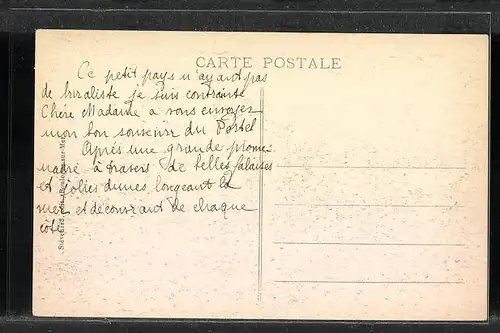 CARTE POSTALE
Ce petit pays n'ayant pas
de buraliste je suis contrainte
Chère Madame a vous envoyer
mon bon souvenir du Portel
Après une grande prome
nade à travers de belles falaises
et jolies dunes, longeant la
mer et découvrant de chaque
côté
Stévenard, Boulogne-sur-Mer